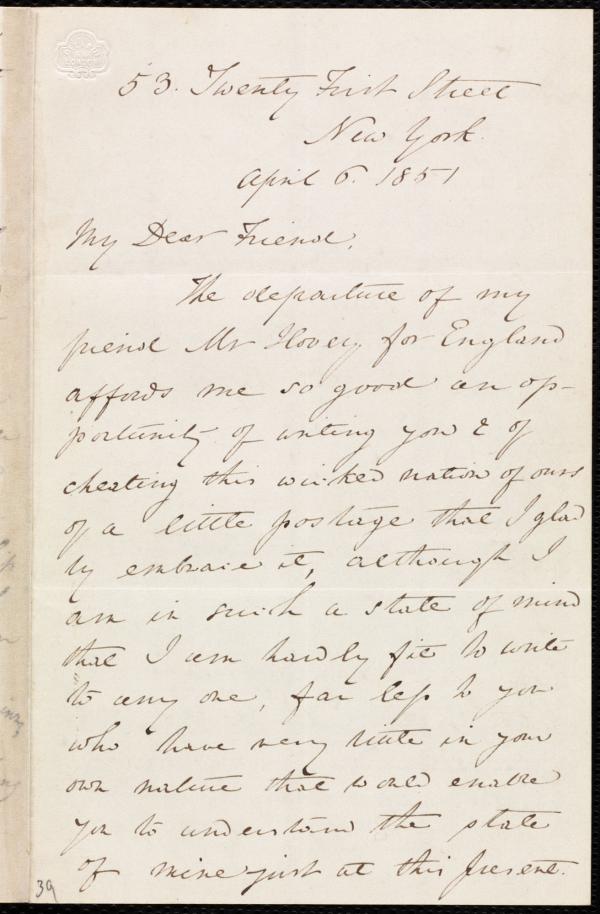 53. Twenty First Street
New York.
April 6. 1851
My Dear Friend,
The departure of my
friend Mr Hovey for England
affords me so good an op-
portunity of writing you & of
cheating this wicked nation of ours
of a little postage that I glad
ly embrace it, although I
am in such a state of mind
that I am hardly fit to write
to any one, far less to you
who have very little in your
own nature that would enable
you to understand the state
of mine just at this present.
39